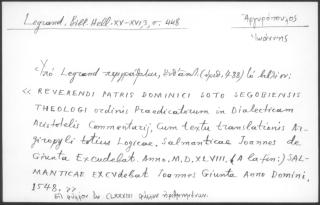 Legrand. Bibl. Hell. XV-XVI, 3, σ. 448
Ἀργυρόπουλος
Ἰωάννης
Ὑπὸ Legrand περιγράφεται, (ἀριθ. 488) τὸ βιβλίον:
« REVERENDI PATRIS DOMINICI SOTO SEGOBIENSIS
THEOLOGI ordinis Praedicatorum in Dialecticam
Aristotelis Commentarij, Cum textu translationis Ar-
giropyli totius Logicae. Salmanticae Ioannes de
Giunta Excudebat. Anno, M.D.XLVIII. (A la fin:) SAL-
MANTICAE EXCVdebat Ioannes Giunta Anno Domini,
1548, »
CLXXXIII φύλλων ἠριθμημένων.